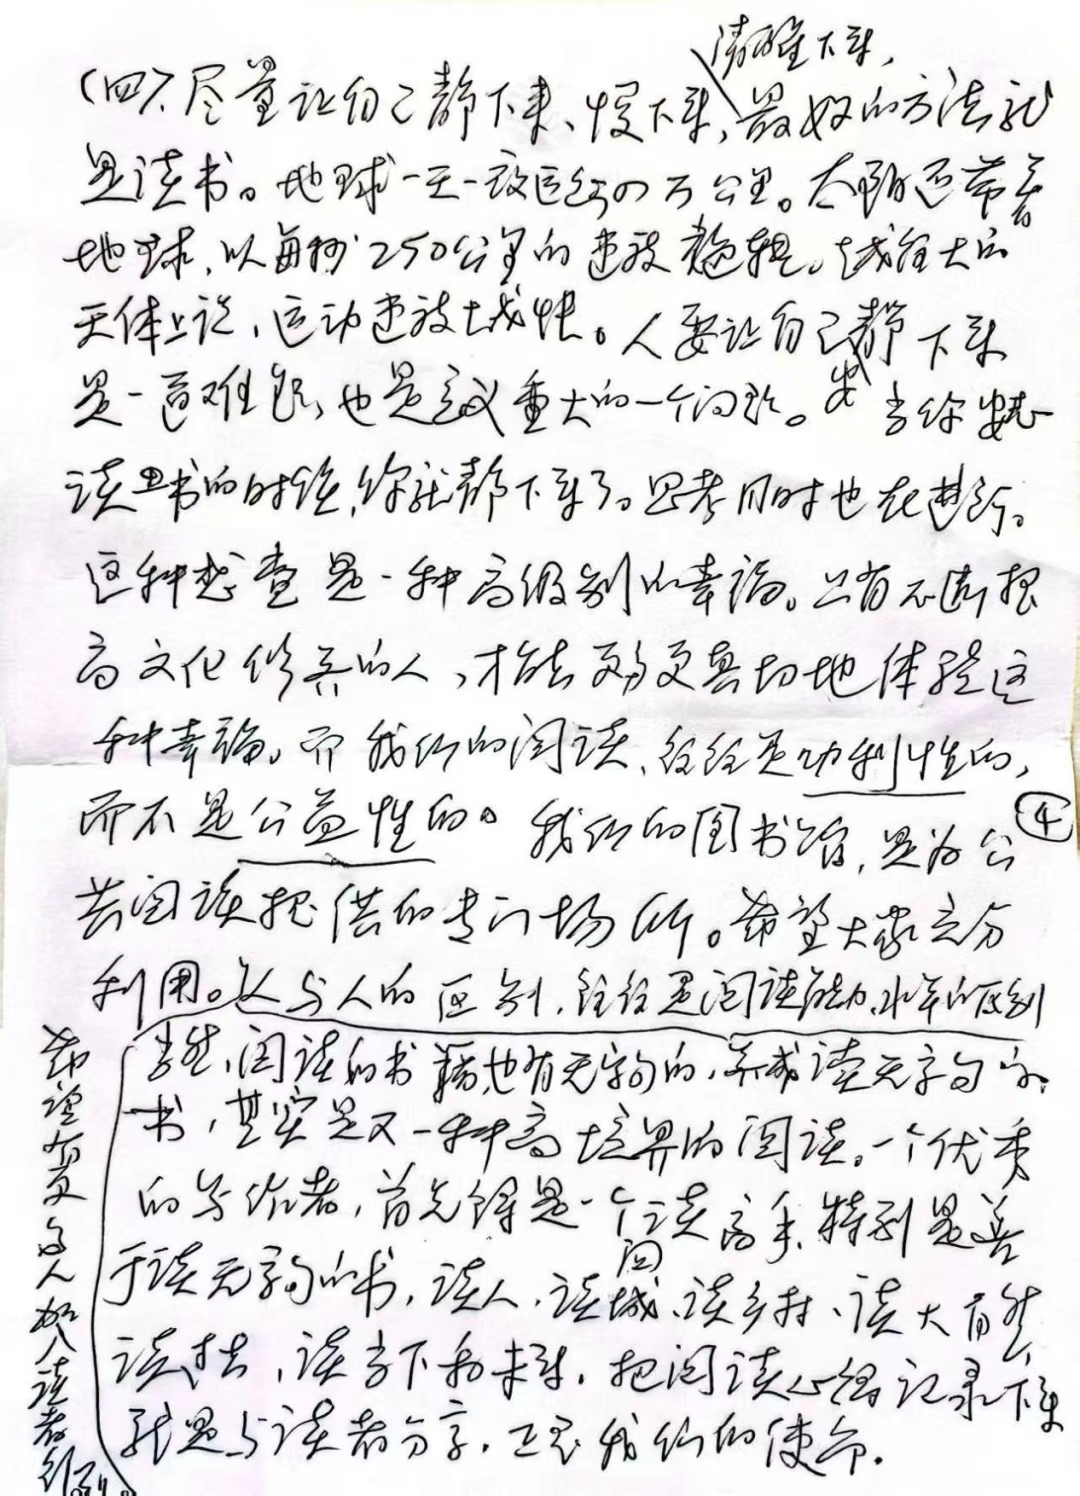 清醒下来,
(四)、尽量让自己静下来、慢下来,最好的方法就
是读书。地球一天一夜运行四万公里。太阳还带着
地球,以每秒250公里的速度奔跑。越往大的
天体上说,运动速度越快。人要让自己静下来
是一道难题,也是意义重大的一个问题。当你安心
读书的时候,你就静下来了。思考同时也在进行。
这种状态是一种高级别的幸福。只有不断提
高文化修养的人,才能更真切地体验这
种幸福。而我们的阅读,往往是功利性的,
而不是公益性的。我们的图书馆,是为公
④
共阅读提供的专门场所。希望大家充分
利用。人与人的区别,往往是阅读能力、水平的区别
当然,阅读的书籍也有无字的,养成读无字句的
书,其实是又一种高境界的阅读。一个优秀
的写作者,首先得是一个阅读高手,特别是善
于读无字句的书,读人,读城、读乡村、读大自然,
读过去,读当下和未来。把阅读心得记录下来
就是与读者分享,正是我们的使命。
希望有更多人加入读者行列。